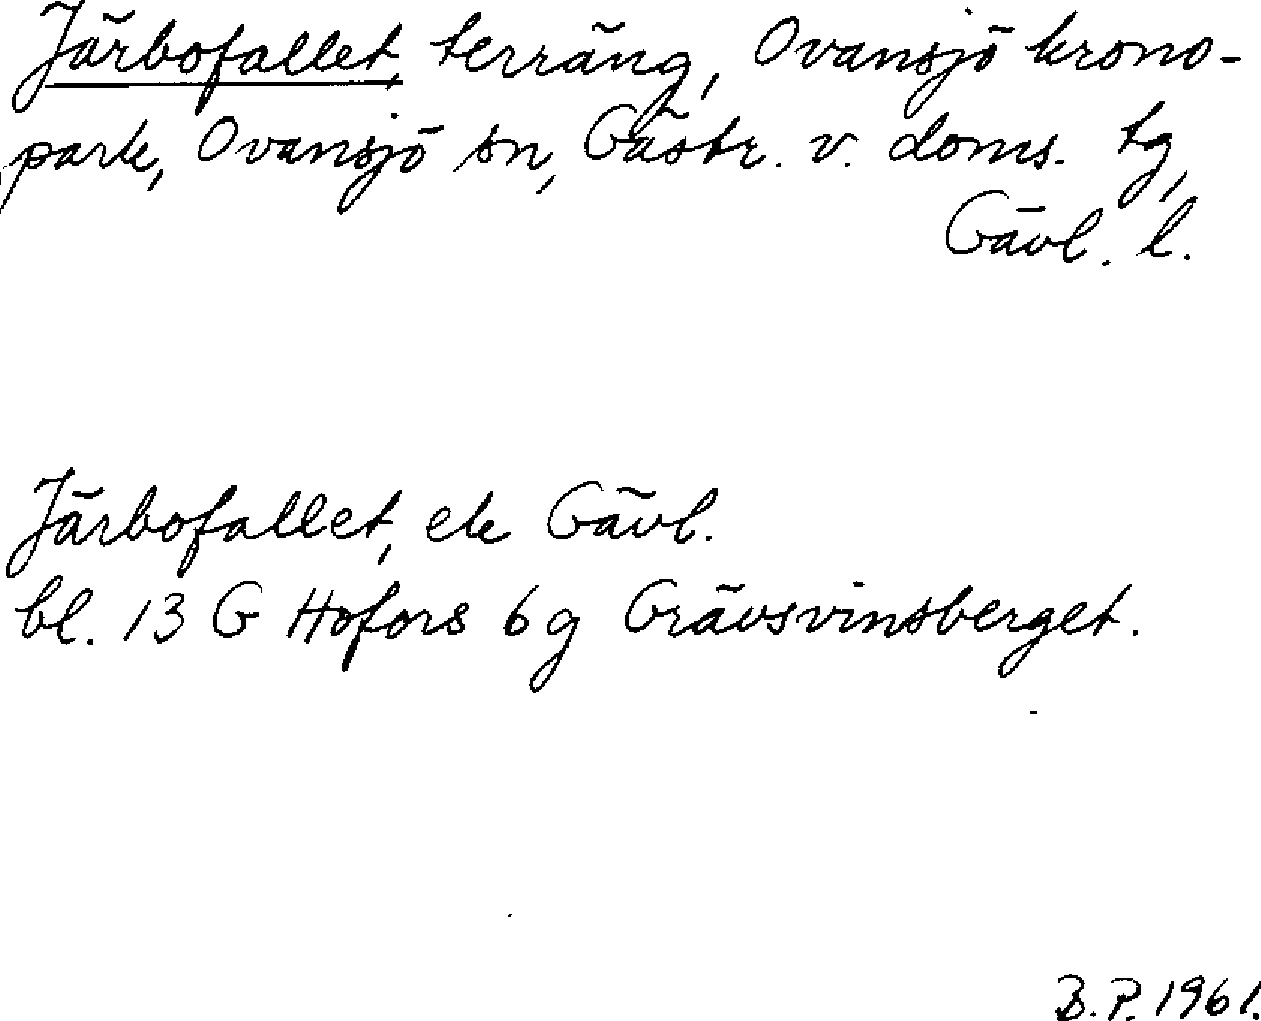 Järbofallet, terräng, Ovansjö krono-
park, Ovansjö sn, Gästr. v. doms. tg,
Gävl. l.
Järbofallet, ek Gävl.
bl. 13 G Hofors 6 g Grävsvinsberget.
B.P. 1961.